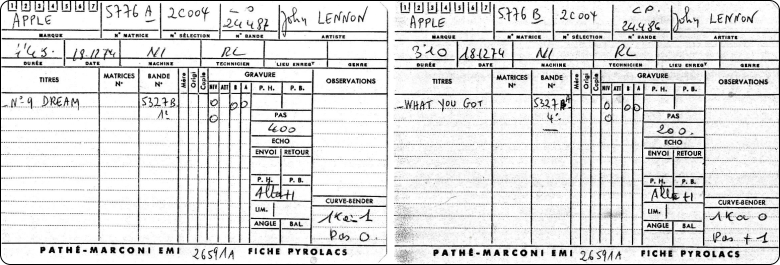 1 2 3 4 5 6 7
APPLE
5776 A
2C004
24487
John LENNON
MARQUE
N° MATRICE
N° SÉLECTION
N° BANDE
ARTISTE
18.12.74
N1
RL
DURÉE
DATE
MACHINE
TECHNICIEN
LIEU ENREGT
GENRE
TITRES
MATRICES N°
BANDE N°
Mère
Origi
Copie
GRAVURE
NIV
ATT
B
A
P. H.
P. B.
OBSERVATIONS
N° 9 DREAM
5327 B
1°
0
0 0
0
PAS
400
ECHO
ENVOI
RETOUR
P. H.
P. B.
LIM.
ANGLE
BAL.
CURVE-BENDER
Pas 0
PATHÉ-MARCONI EMI
26591A
FICHE PYROLACS
1 2 3 4 5 6 7
APPLE
5776 B
2C004
C.P.
24.486
John LENNON
MARQUE
N° MATRICE
N° SÉLECTION
N° BANDE
ARTISTE
3'10
18.12.74
N1
RL
DURÉE
DATE
MACHINE
TECHNICIEN
LIEU ENREGT
GENRE
TITRES
MATRICES N°
BANDE N°
Mère
Origi
Copie
GRAVURE
NIV
ATT
B
A
P. H.
P. B.
OBSERVATIONS
WHAT YOU GOT
5327
4°
0
0 0
0
PAS
200.
ECHO
ENVOI
RETOUR
P. H.
P. B.
LIM.
ANGLE
BAL.
CURVE-BENDER
1K à 0
Pas + 1
PATHÉ-MARCONI EMI
26591A
FICHE PYROLACS